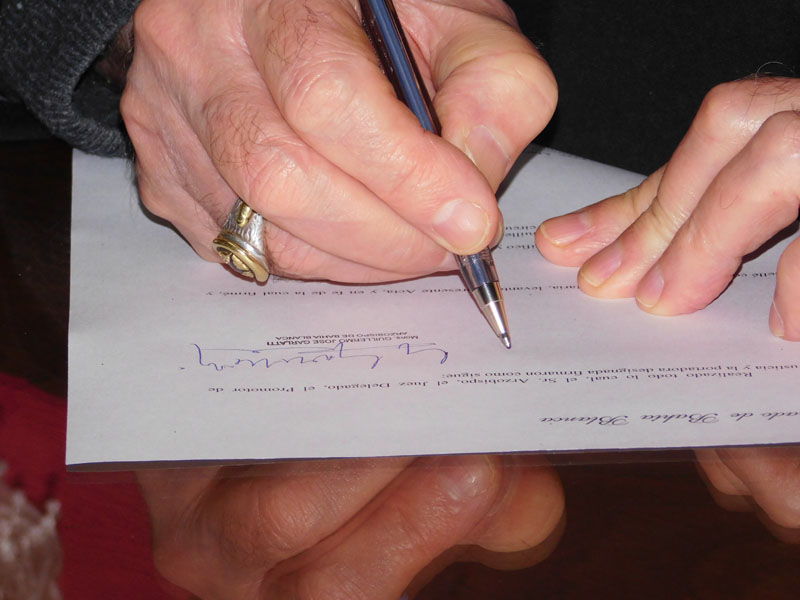 ado de Bahía Blanca
Realizado todo lo cual, el Sr. Arzobispo, el Juez Delegado, el Promotor de
usticia y la portadora designada firmaron como sigue:
Mons. GUILLERMO JOSE GARLATTI
ARZOBISPO DE BAHIA BLANCA
aria, levan presente Acta, y en fe de la cual firmé, y
ellé en ifico y
uille